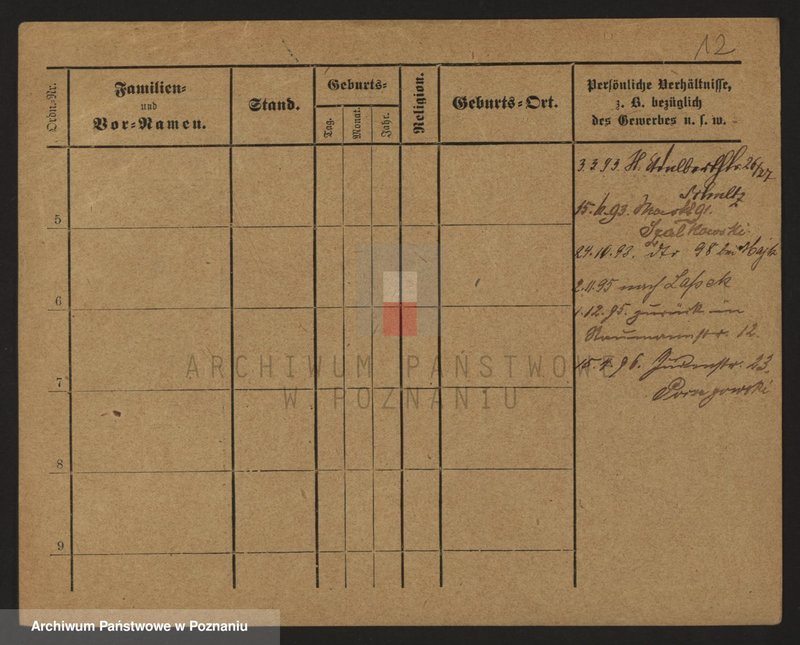 12
Ordn.-Nr.
Familien-
und
Vor-Namen.
Stand.
Geburts-
Tag.
Monat.
Jahr.
Religion.
Geburts-Ort.
Persönliche Verhältnisse,
z. B. bezüglich
des Gewerbes u. s. w.
3.3.93. St. Adalbertstr. 26/27
Schultz
5
15. 93. Markt 91.
6
24.10.93. dto 98 bei
2.11.95 nach
1.12.95. zurück in
Naumannstr. 12.
7
15.4.96. Judenstr. 23.
8
9
ARCHIWUM PAŃSTWOWE
W POZNANIU
Archiwum Państwowe w Poznaniu